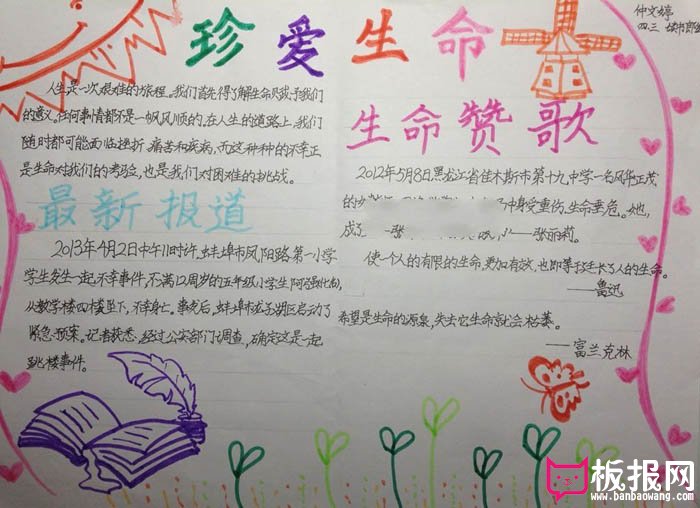 珍爱生命
仲文婷
四三
人生是一次艰难的旅程。我们首先得了解生命赋予我们
的意义。任何事情都不是一帆风顺的,在人生的道路上,我们
随时都可能面临挫折、痛苦和疾病,而这种种的不幸正
是生命对我们的考验,也是我们对困难的挑战。
最新报道
2013年4月2日中午11时许,蚌埠市凤阳路第一小学
学生发生一起不幸事件,不满12周岁的五年级小学生阿强(化名)
从教学楼四楼坠下,不幸身亡。事发后,蚌埠市龙子湖区启动了
紧急预案。记者获悉,经过公安部门调查,确定这是一起
跳楼事件。
生命赞歌
2012年5月8日,黑龙江省佳木斯市第十九中学一名风华正茂
的女 中身受重伤,生命垂危。她,
成了 一张 张丽莉。
使一个人的有限的生命,更加有效,也即等于延长了人的生命。
——鲁迅
希望是生命的源泉,失去它生命就会枯萎。
——富兰克林
板报网
www.banbaowang.com